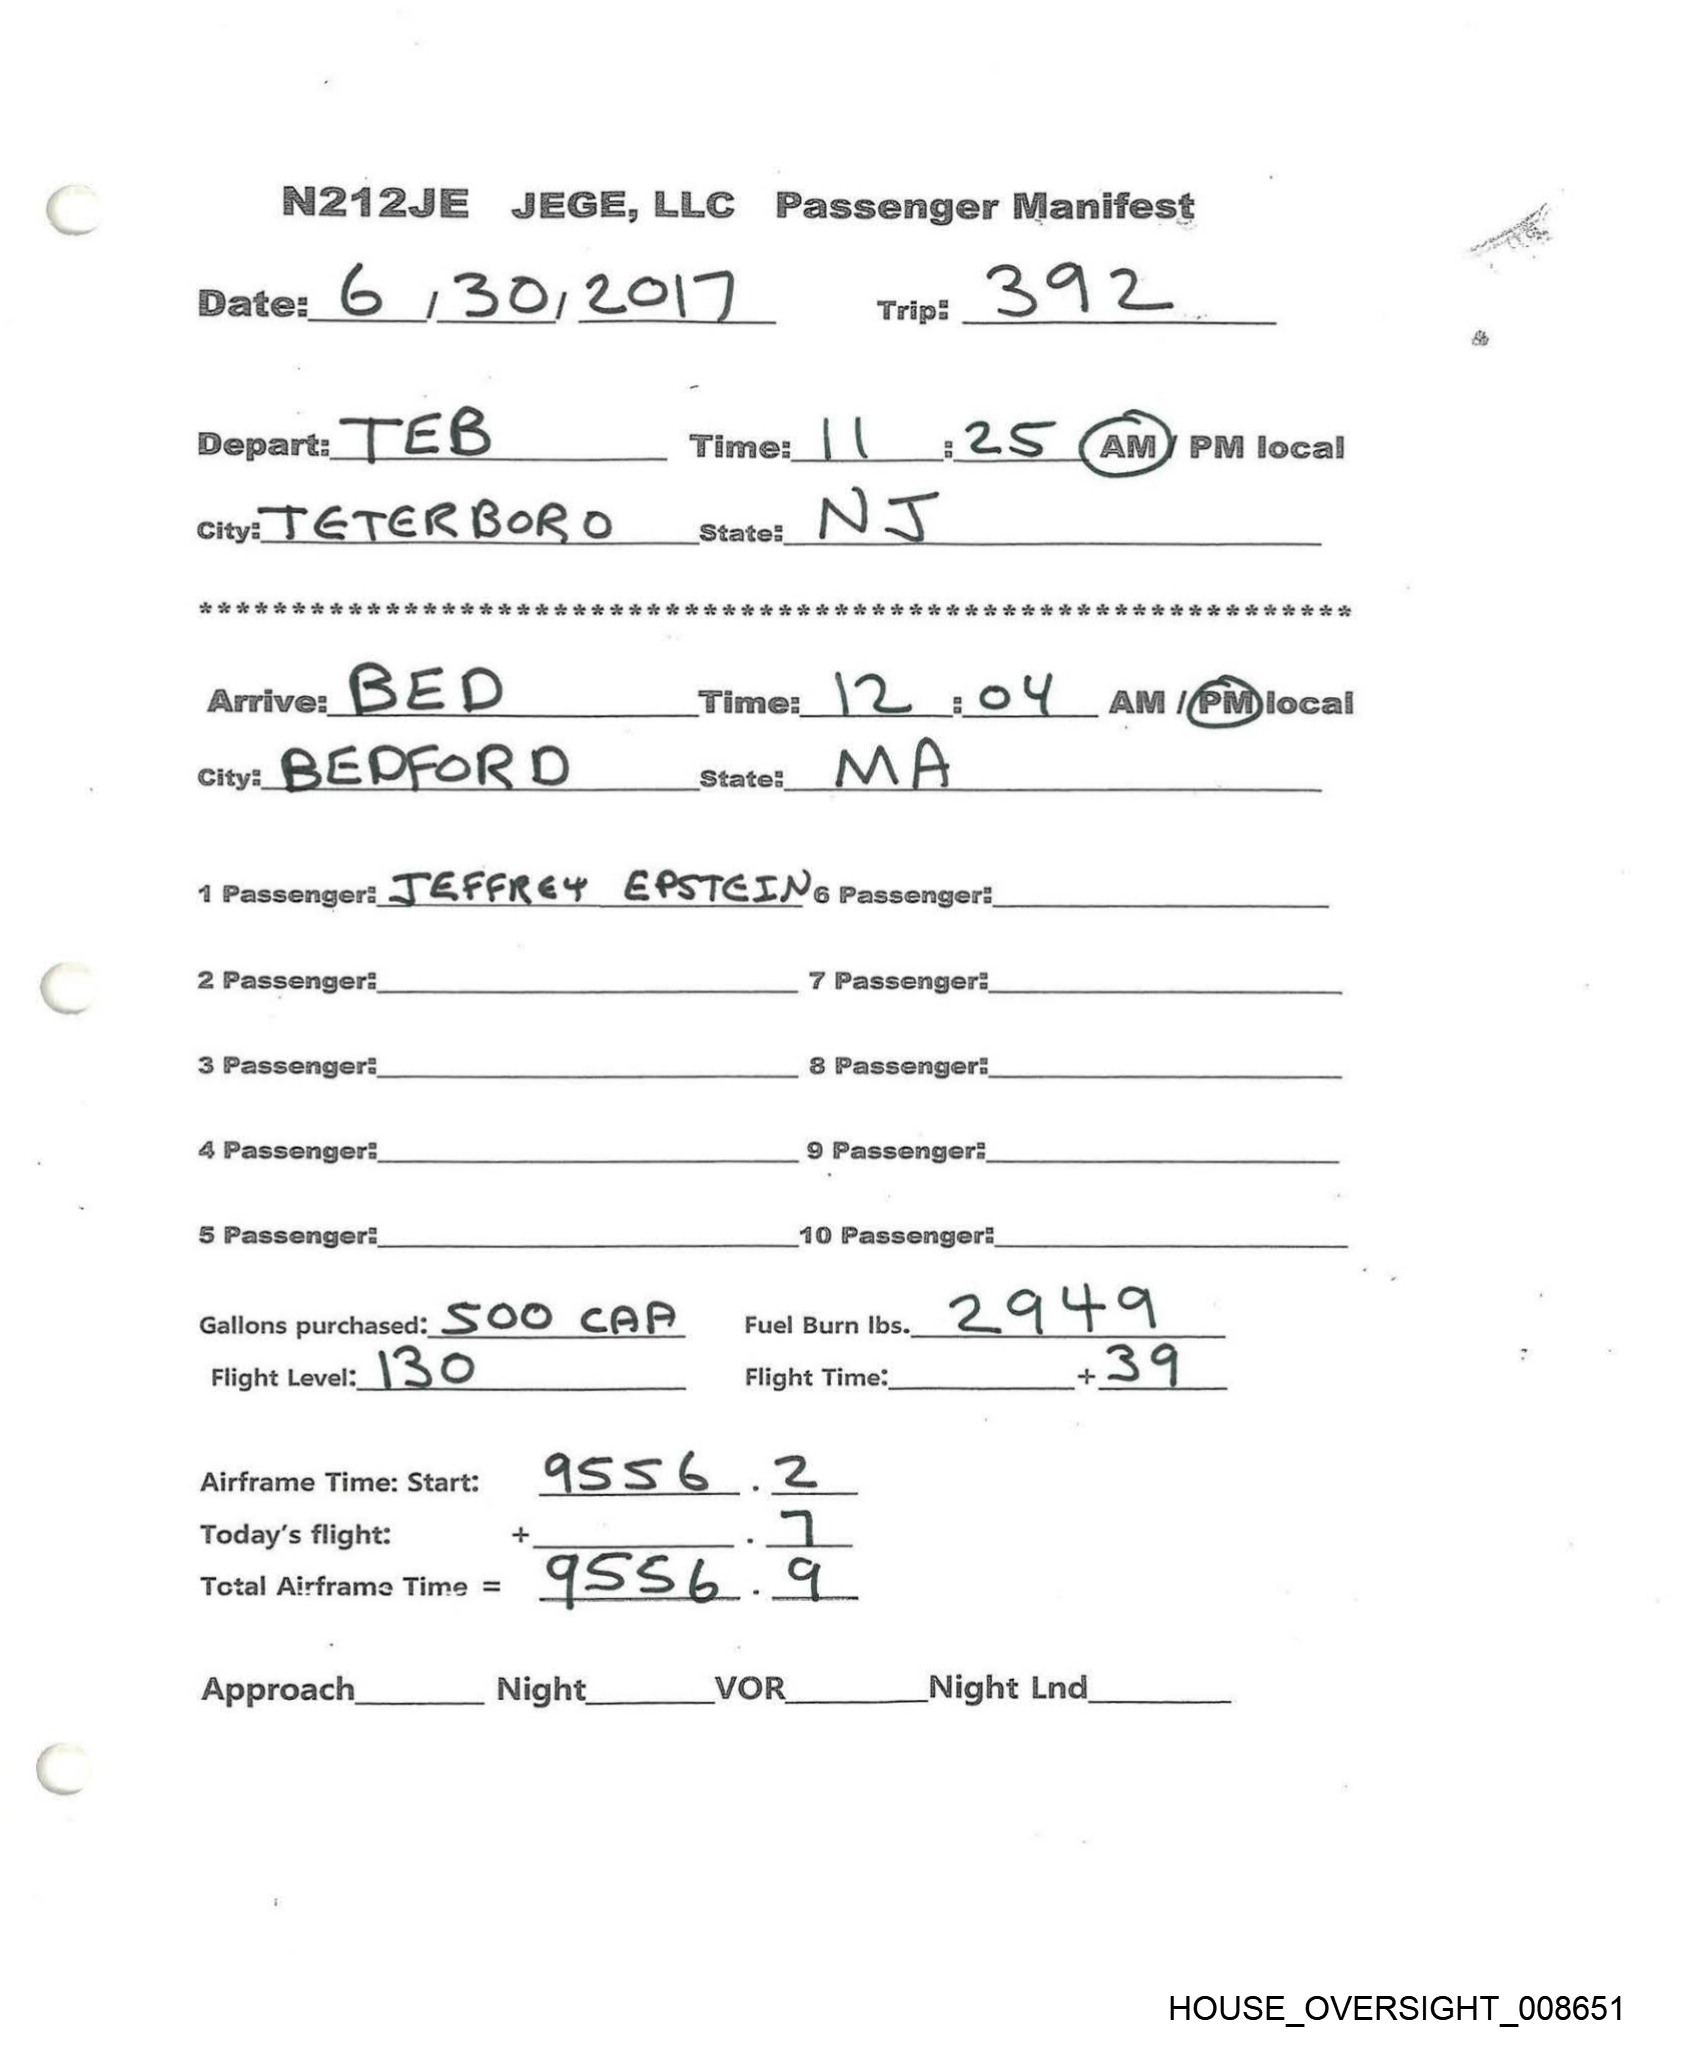 N212JE JEGE, LLC Passenger Manifest
Date: 6 / 30 / 2017 Trip: 392
Depart: TEB Time: 11 : 25 AM / PM local
City: TETERBORO State: NJ
**************************************************************
Arrive: BED Time: 12 : 04 AM / PM local
City: BEDFORD State: MA
1 Passenger: JEFFREY EPSTEIN 6 Passenger:
2 Passenger: 7 Passenger:
3 Passenger: 8 Passenger:
4 Passenger: 9 Passenger:
5 Passenger: 10 Passenger:
Gallons purchased: 500 CAA Fuel Burn lbs. 2949
Flight Level: 130 Flight Time: + 39
Airframe Time: Start: 9556 . 2
Today's flight: + . 7
Total Airframe Time = 9556 . 9
Approach Night VOR Night Lnd
HOUSE_OVERSIGHT_008651